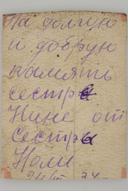 На долгую
и добрую
память
сестре
Нине от
сестры